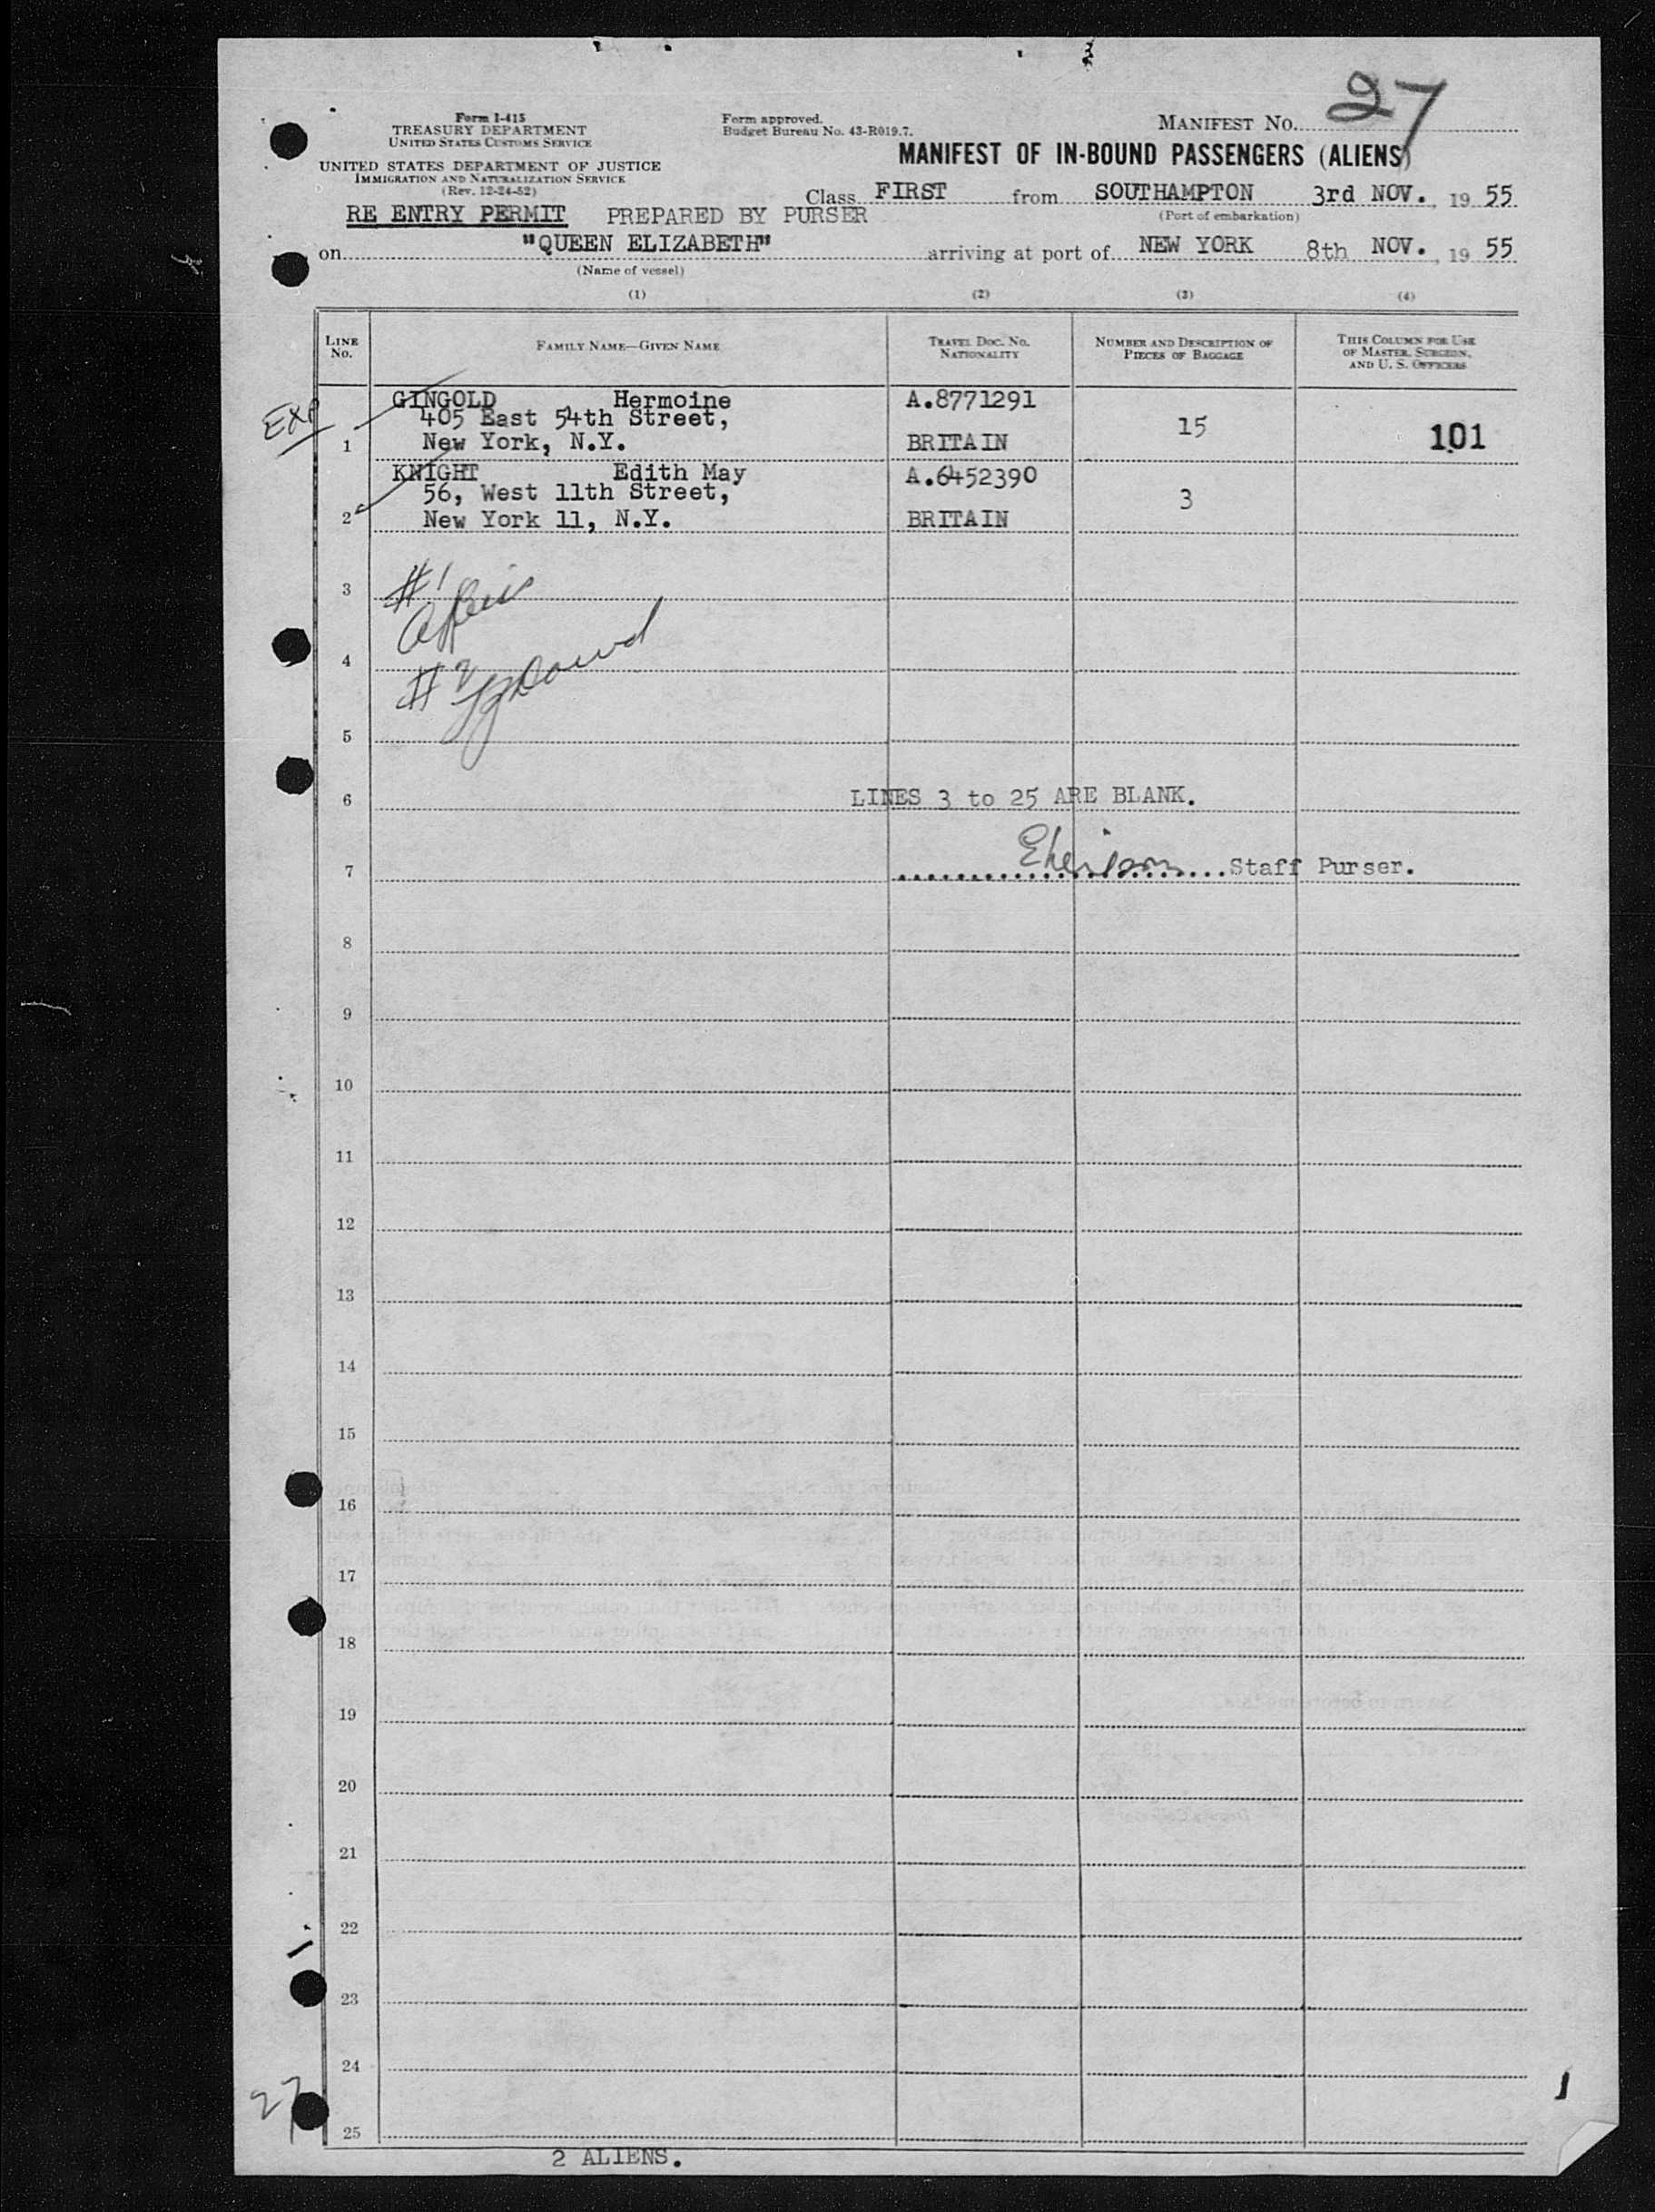 27
Form I-415
TREASURY DEPARTMENT
UNITED STATES CUSTOMS SERVICE
UNITED STATES DEPARTMENT OF JUSTICE
IMMIGRATION AND NATURALIZATION SERVICE
(Rev. 12-24-52)
Form approved.
Budget Bureau No. 43-R019.7.
MANIFEST NO.
MANIFEST OF IN-BOUND PASSENGERS (ALIENS)
Class FIRST from SOUTHAMPTON 3rd NOV., 19 55
(Port of embarkation)
RE ENTRY PERMIT PREPARED BY PURSER
on "QUEEN ELIZABETH" arriving at port of NEW YORK 8th NOV., 19 55
(Name of vessel)
(1) (2) (3) (4)
LINE NO. FAMILY NAME—GIVEN NAME TRAVEL DOC. NO. NATIONALITY NUMBER AND DESCRIPTION OF PIECES OF BAGGAGE THIS COLUMN FOR USE OF MASTER, SURGEON, AND U. S. OFFICERS
GINGOLD Hermoine A.8771291
Exp 405 East 54th Street, 15
1 New York, N.Y. BRITAIN 101
KNIGHT Edith May A.6452390
56, West 11th Street, 3
2 New York 11, N.Y. BRITAIN
3 #1
4 #2
5
6 LINES 3 to 25 ARE BLANK.
7 Staff Purser.
8
9
10
11
12
13
14
15
16
17
18
19
20
21
22
23
24
27
25
2 ALIENS.